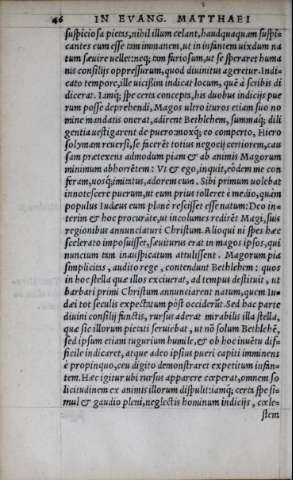 46 IN EVANG. MATTHAEI
suspicio sa pietas, nihil illum celant, haudquaquam suspi-
cantes eum esse tam immanem, ut in infantem uixdum na
tum sæuire uellet: neq; tam furiosum, ut se speraret huma
nis consilijs oppressurum, quod diuinitus ageretur. Indi-
cato tempore, ille uicissim indicat locum, quē à scribis di
dicerat. Iamq; spe certa concepta, his duobus indicijs pue
rum posse deprehendi, Magos ultro ituros etiam suo no
mine mandatis onerat, adirent Bethlehem, summaq; dili
gentia uestigarent de puero: moxq; eo comperto, Hiero
solymam reuersi, se facerēt totius negocij certiorem, cau
sam prætexens admodum piam & ab animis Magorum
minimum abhorrētem: Vt & ego, inquit, eódem me con
feram, uosq́; imitatus, adorem eum. Sibi primum uolebat
innotescere puerum, ut eum prius tolleret è medio, quàm
populus Iudæus eum planè resciset esse natum: Deo in=
terim & hoc procuráte, ut incolumes redirēt Magi, suis
regionibus annunciaturi Christum. Alioqui si spes hæc
scelerato imposuisset, sæuiturus erat in magos ipsos, qui
nuncium tam inauspicatum attulissent. Magorum pia
simplicitas, audito rege, contendunt Bethlehem: quos
in hoc stella quæ illos exciuerat, ad tempus destituit, ut
barbari primi Christum annunciarent natum, quem Iu=
dæi tot seculis expectatum pòst occiderūt. Sed hac parte
diuini consilij functis, rursus aderat mirabilis illa stella,
quæ sic illorum pietati seruiebat, ut nō solum Bethlehē,
sed ipsum etiam tugurium humile, & ob hoc inuētu dif-
ficile indicaret, atque adeo ipsius pueri capiti imminens
è propinquo, ceu digito demonstraret expetitum infan=
tem. Hæc igitur ubi rursus apparere cœperat, omnem so
licitudinem ex animis illorum dispulit: iamq; certa spe si=
mul & gaudio pleni, neglectis hominum indicijs, cœle=
stem